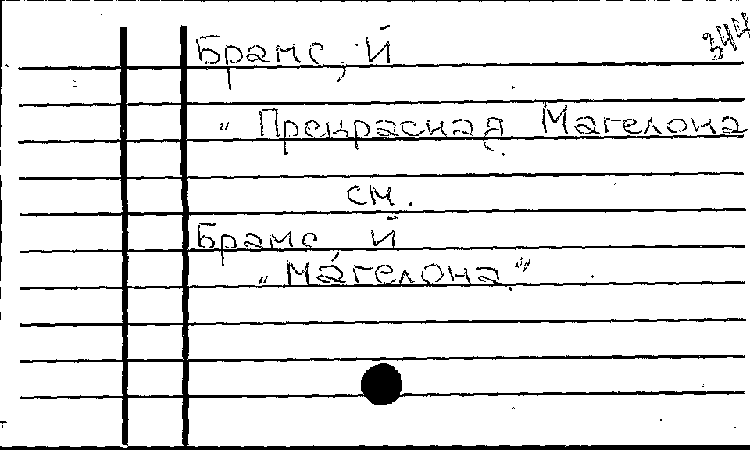 344
Брамс, Й
„ Прекрасная Магелона
см.
Брамс, Й
„Магелона“